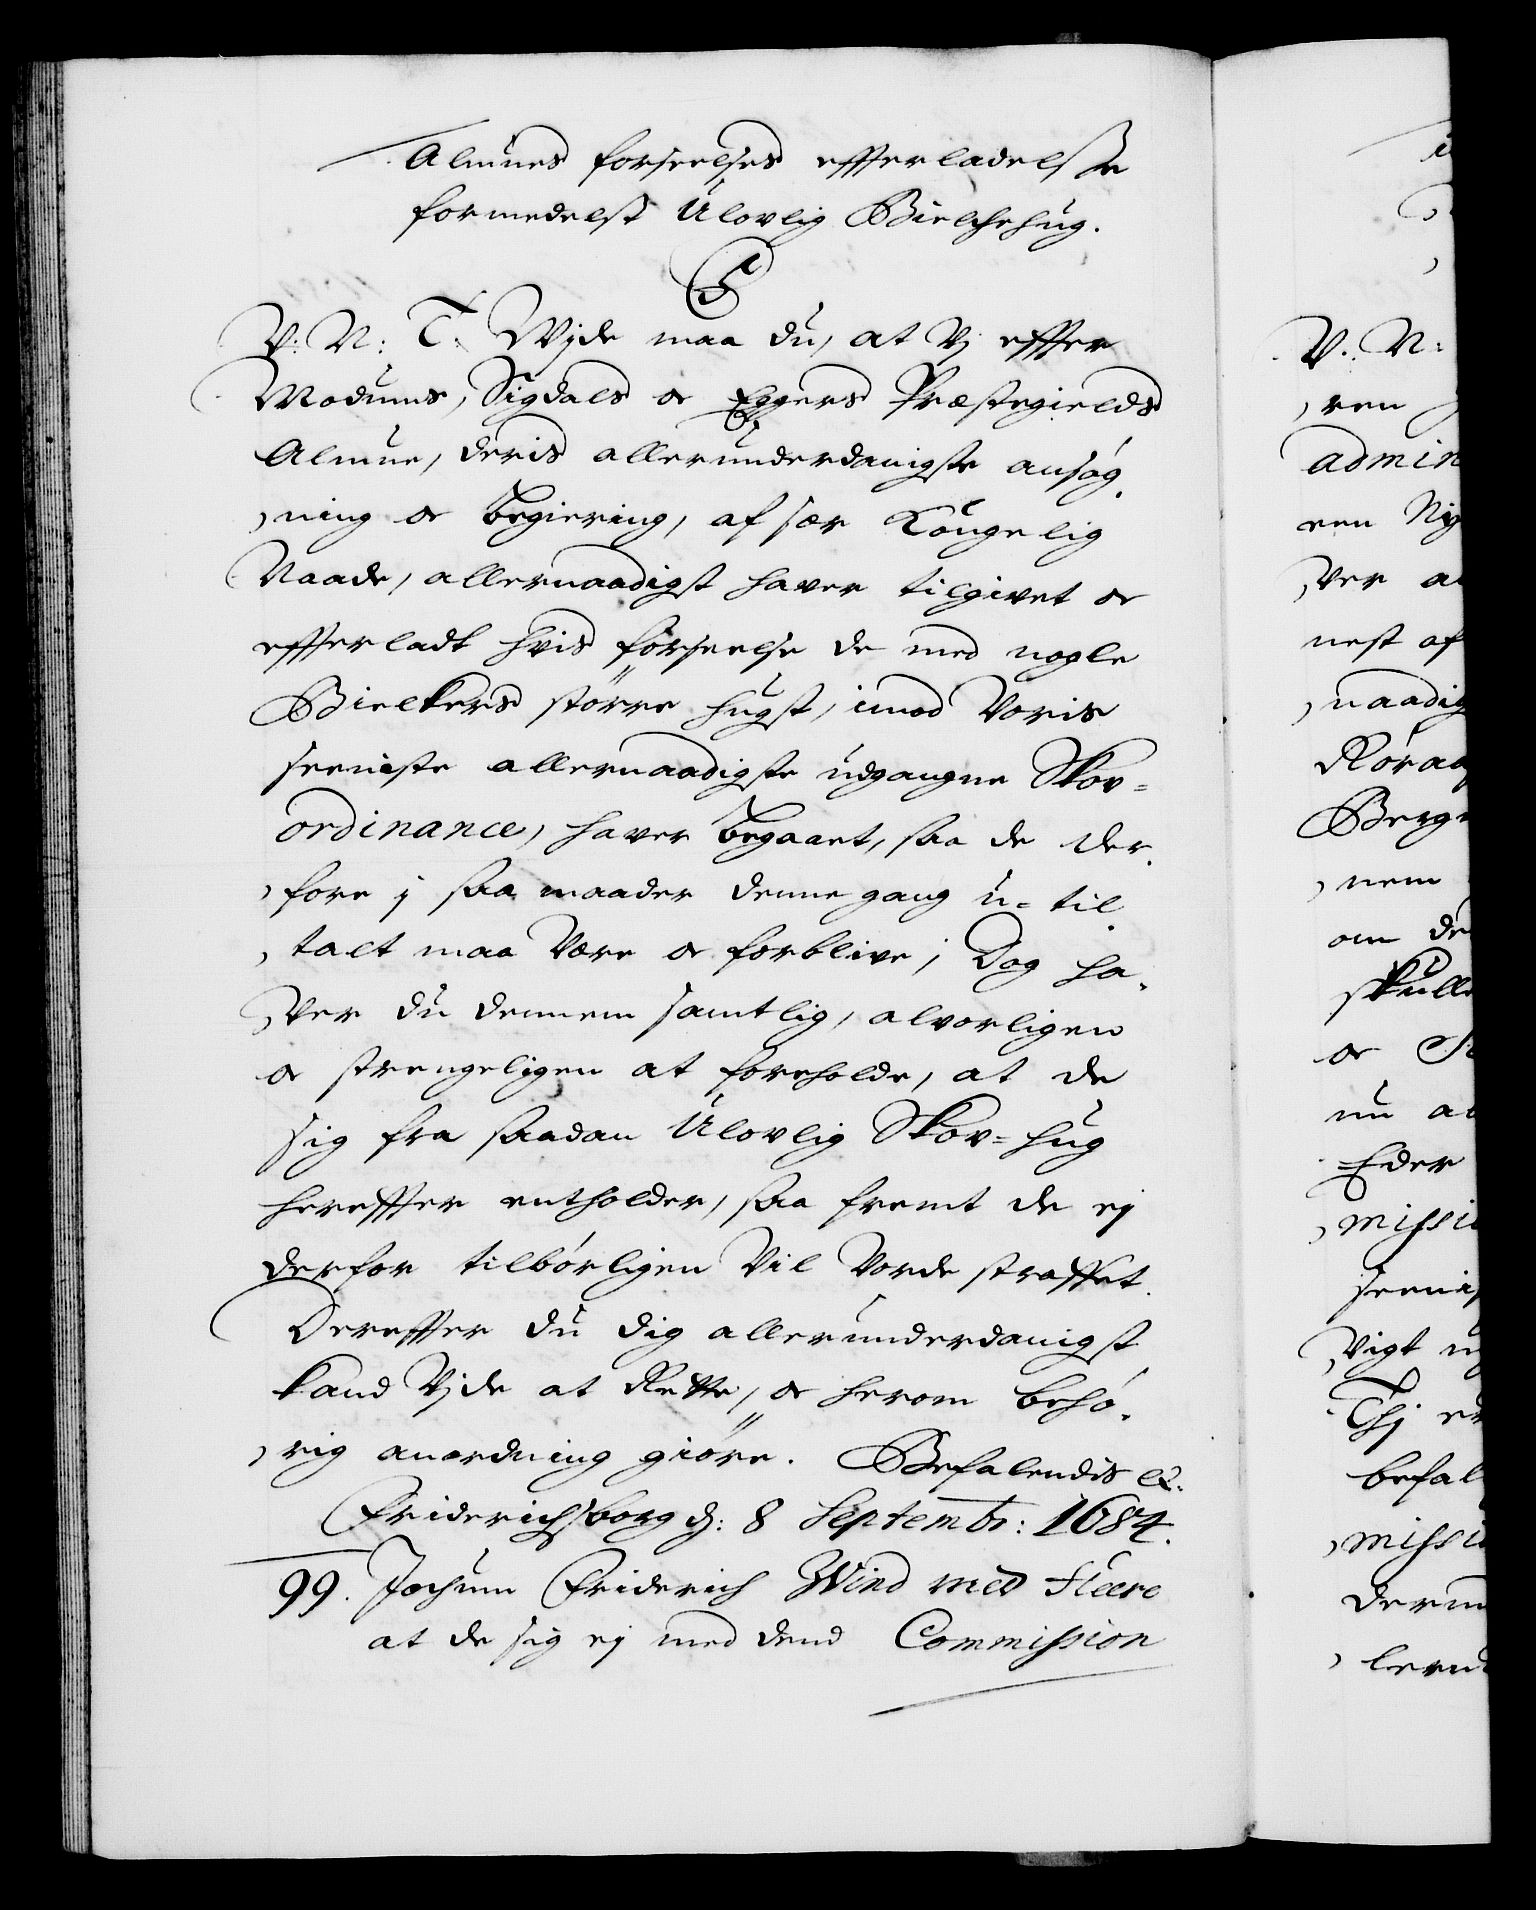 Almues forseelses effterladelsse
formedelst Ulovlig Bielchehug.
C5
V: N: T. Wjde maa du, at Vj effter
Modums, Sigdals oc Eggers Præstegields
Almue, deris allerunderdanigste ansøg,
,ning oc begiering, af sær Kongelig
Naade, allernaadigst haver tilgivet oc
effterladt hvis forseelse de med nogle
Bielkers større hugst, imod Voris
seeniste allernaadigste udgangne Skov=
ordinance, haver begaaet, saa de der,
,fore j saa maader denne gang u=til,
,talt maa Være oc forblive; Dog ha,
,ver du dennem samtlig, alvorligen
oc strengeligen at foreholde, at de
sig fra saadan Ulovlig Skov=hug
hereffter entholder, saa fremt de ej
derfor tilbørligen Vil Vorde straffet.
Dereffter du dig allerunderdanigst
kand Vjde at Rette, oc herom behø,
,rig anordning giøre. Befalendis etc.
Friderichsborg d: 8 Septembr: 1684.
99. Jochum Friderich Wind med fleere
at de sig ej med dend Commission
V. N:
,ren
admin
een Ny
,ver a
nest af
,naadig
Røraa
Berg
,nem
om de
skulle
oc
nu a
Eder
,missi
seenis
,vigt u
Thj e
befal
,missi
derm
,lerud